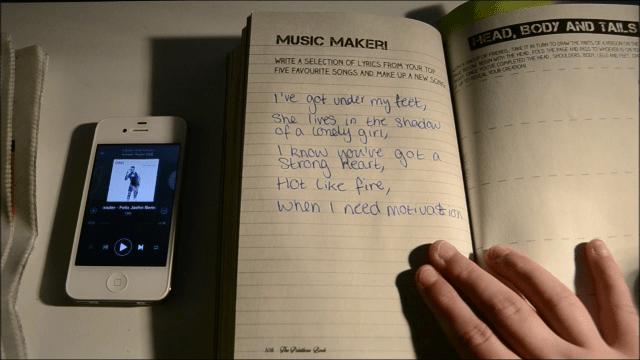 MUSIC MAKER!
WRITE A SELECTION OF LYRICS FROM YOUR TOP
FIVE FAVOURITE SONGS AND MAKE UP A NEW SONG
I've got under my feet,
She lives in the shadow
of a lonely girl,
I know you've got a
strong heart,
Hot like fire,
When I need motivation
108 The Pointless Book
HEAD, BODY AND TAILS
FRIENDS, TAKE IT IN TURN TO DRAW THE PARTS OF A PERSON ON THE
Felix Jaehn Remix